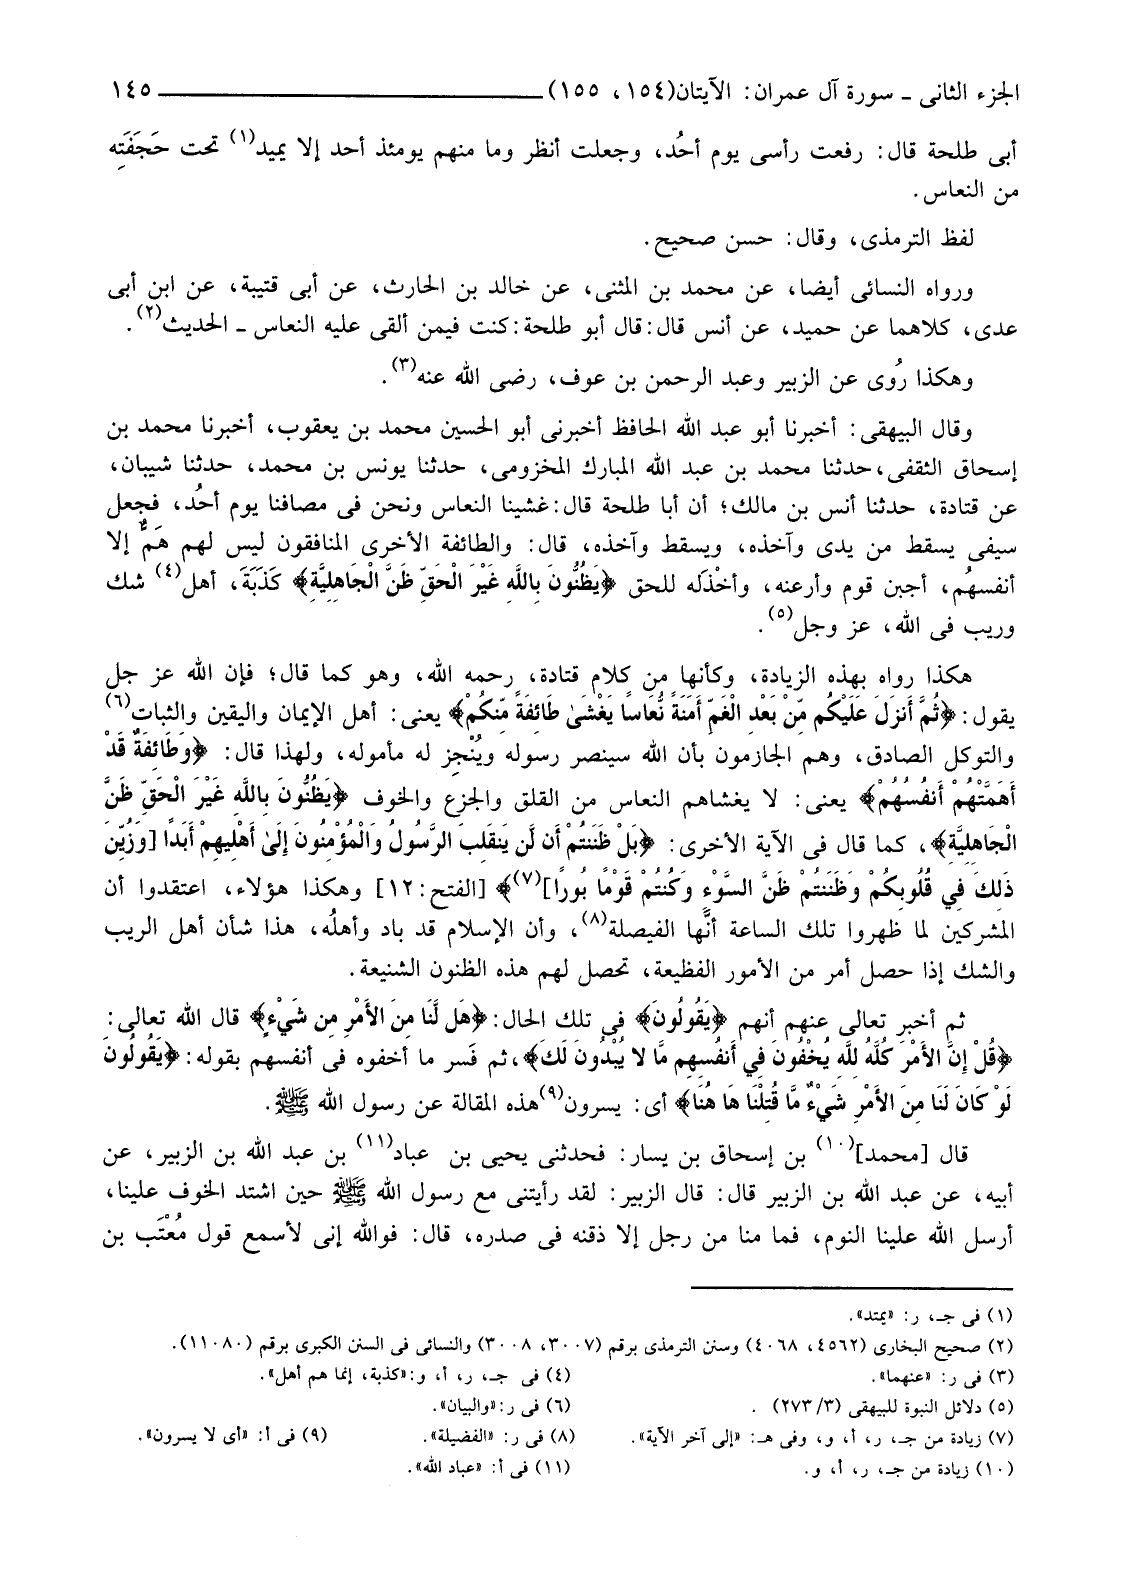 الجزء الثانى ـ سورة آل عمران: الآيتان(١٥٤، ١٥٥) ١٤٥
أبى طلحة قال: رفعت رأسى يوم أحُد، وجعلت أنظر وما منهم يومئذ أحد إلا يميد(١) تحت حَجَفَتِه
من النعاس.
لفظ الترمذى، وقال: حسن صحيح.
ورواه النسائى أيضا، عن محمد بن المثنى، عن خالد بن الحارث، عن أبى قتيبة، عن ابن أبى
عدى، كلاهما عن حميد، عن أنس قال:قال أبو طلحة:كنت فيمن ألقى عليه النعاس ـ الحديث(٢).
وهكذا رُوى عن الزبير وعبد الرحمن بن عوف، رضى الله عنه(٣).
وقال البيهقى: أخبرنا أبو عبد الله الحافظ أخبرنى أبو الحسين محمد بن يعقوب، أخبرنا محمد بن
إسحاق الثقفى،حدثنا محمد بن عبد الله المبارك المخزومى، حدثنا يونس بن محمد، حدثنا شيبان،
عن قتادة، حدثنا أنس بن مالك؛ أن أبا طلحة قال:غشينا النعاس ونحن فى مصافنا يوم أحُد، فجعل
سيفى يسقط من يدى وآخذه، ويسقط وآخذه، قال: والطائفة الأخرى المنافقون ليس لهم هَمٌّ إلا
أنفسهُم، أجبن قوم وأرعنه، وأخْذَله للحق ﴿يَظُنُّونَ بِاللَّهِ غَيْرَ الْحَقِّ ظَنَّ الْجَاهِلِيَّةِ﴾ كَذَبَةَ، أهل(٤) شك
وريب فى الله، عز وجل(٥).
هكذا رواه بهذه الزيادة، وكأنها من كلام قتادة، رحمه الله، وهو كما قال؛ فإن الله عز جل
يقول:﴿ثُمَّ أَنزَلَ عَلَيْكُم مِّنْ بَعْدِ الْغَمِّ أَمَنَةً نُّعَاسًا يَغْشَىٰ طَائِفَةً مِّنكُمْ﴾ يعنى: أهل الإيمان واليقين والثبات(٦)
والتوكل الصادق، وهم الجازمون بأن الله سينصر رسوله ويُنْجِز له مأموله، ولهذا قال: ﴿وَطَائِفَةٌ قَدْ
أَهَمَّتْهُمْ أَنفُسُهُمْ﴾ يعنى: لا يغشاهم النعاس من القلق والجزع والخوف ﴿يَظُنُّونَ بِاللَّهِ غَيْرَ الْحَقِّ ظَنَّ
الْجَاهِلِيَّةِ﴾، كما قال فى الآية الأخرى: ﴿بَلْ ظَنَنتُمْ أَن لَّن يَنقَلِبَ الرَّسُولُ وَالْمُؤْمِنُونَ إِلَىٰ أَهْلِيهِمْ أَبَدًا [وَزُيِّنَ
ذَلِكَ فِي قُلُوبِكُمْ وَظَنَنتُمْ ظَنَّ السَّوْءِ وَكُنتُمْ قَوْمًا بُورًا](٧)﴾ [الفتح:١٢] وهكذا هؤلاء، اعتقدوا أن
المشركين لما ظهروا تلك الساعة أنَّها الفيصلة(٨)، وأن الإسلام قد باد وأهلُه، هذا شأن أهل الريب
والشك إذا حصل أمر من الأمور الفظيعة، تحصل لهم هذه الظنون الشنيعة.
ثم أخبر تعالى عنهم أنهم ﴿يَقُولُونَ﴾ فى تلك الحال:﴿هَل لَّنَا مِنَ الأَمْرِ مِن شَيْءٍ﴾ قال الله تعالى:
﴿قُلْ إِنَّ الأَمْرَ كُلَّهُ لِلَّهِ يُخْفُونَ فِي أَنفُسِهِم مَّا لا يُبْدُونَ لَكَ﴾،ثم فَسر ما أخفوه فى أنفسهم بقوله:﴿يَقُولُونَ
لَوْ كَانَ لَنَا مِنَ الأَمْرِ شَيْءٌ مَّا قُتِلْنَا هَا هُنَا﴾ أى: يسرون(٩)هذه المقالة عن رسول الله ﷺ.
قال [محمد](١٠) بن إسحاق بن يسار: فحدثنى يحيى بن عباد(١١) بن عبد الله بن الزبير، عن
أبيه، عن عبد الله بن الزبير قال: قال الزبير: لقد رأيتنى مع رسول الله ﷺ حين اشتد الخوف علينا،
أرسل الله علينا النوم، فما منا من رجل إلا ذقنه فى صدره، قال: فوالله إنى لأسمع قول مُعْتَب بن
(١) فى جـ، ر: «يمتد».
(٢) صحيح البخارى (٤٥٦٢، ٤٠٦٨) وسنن الترمذى برقم (٣٠٠٧، ٣٠٠٨) والنسائى فى السنن الكبرى برقم (١١٠٨٠).
(٣) فى ر: «عنهما». (٤) فى جـ، ر، أ، و:«كذبة، إنما هم أهل».
(٥) دلائل النبوة للبيهقى (٣/ ٢٧٣) . (٦) فى ر:«والبيان».
(٧) زيادة من جـ، ر، أ، و، وفى هـ: «إلى آخر الآية». (٨) فى ر: «الفضيلة». (٩) فى أ: «أى لا يسرون».
(١٠) زيادة من جـ، ر، أ، و. (١١) فى أ: «عباد الله».